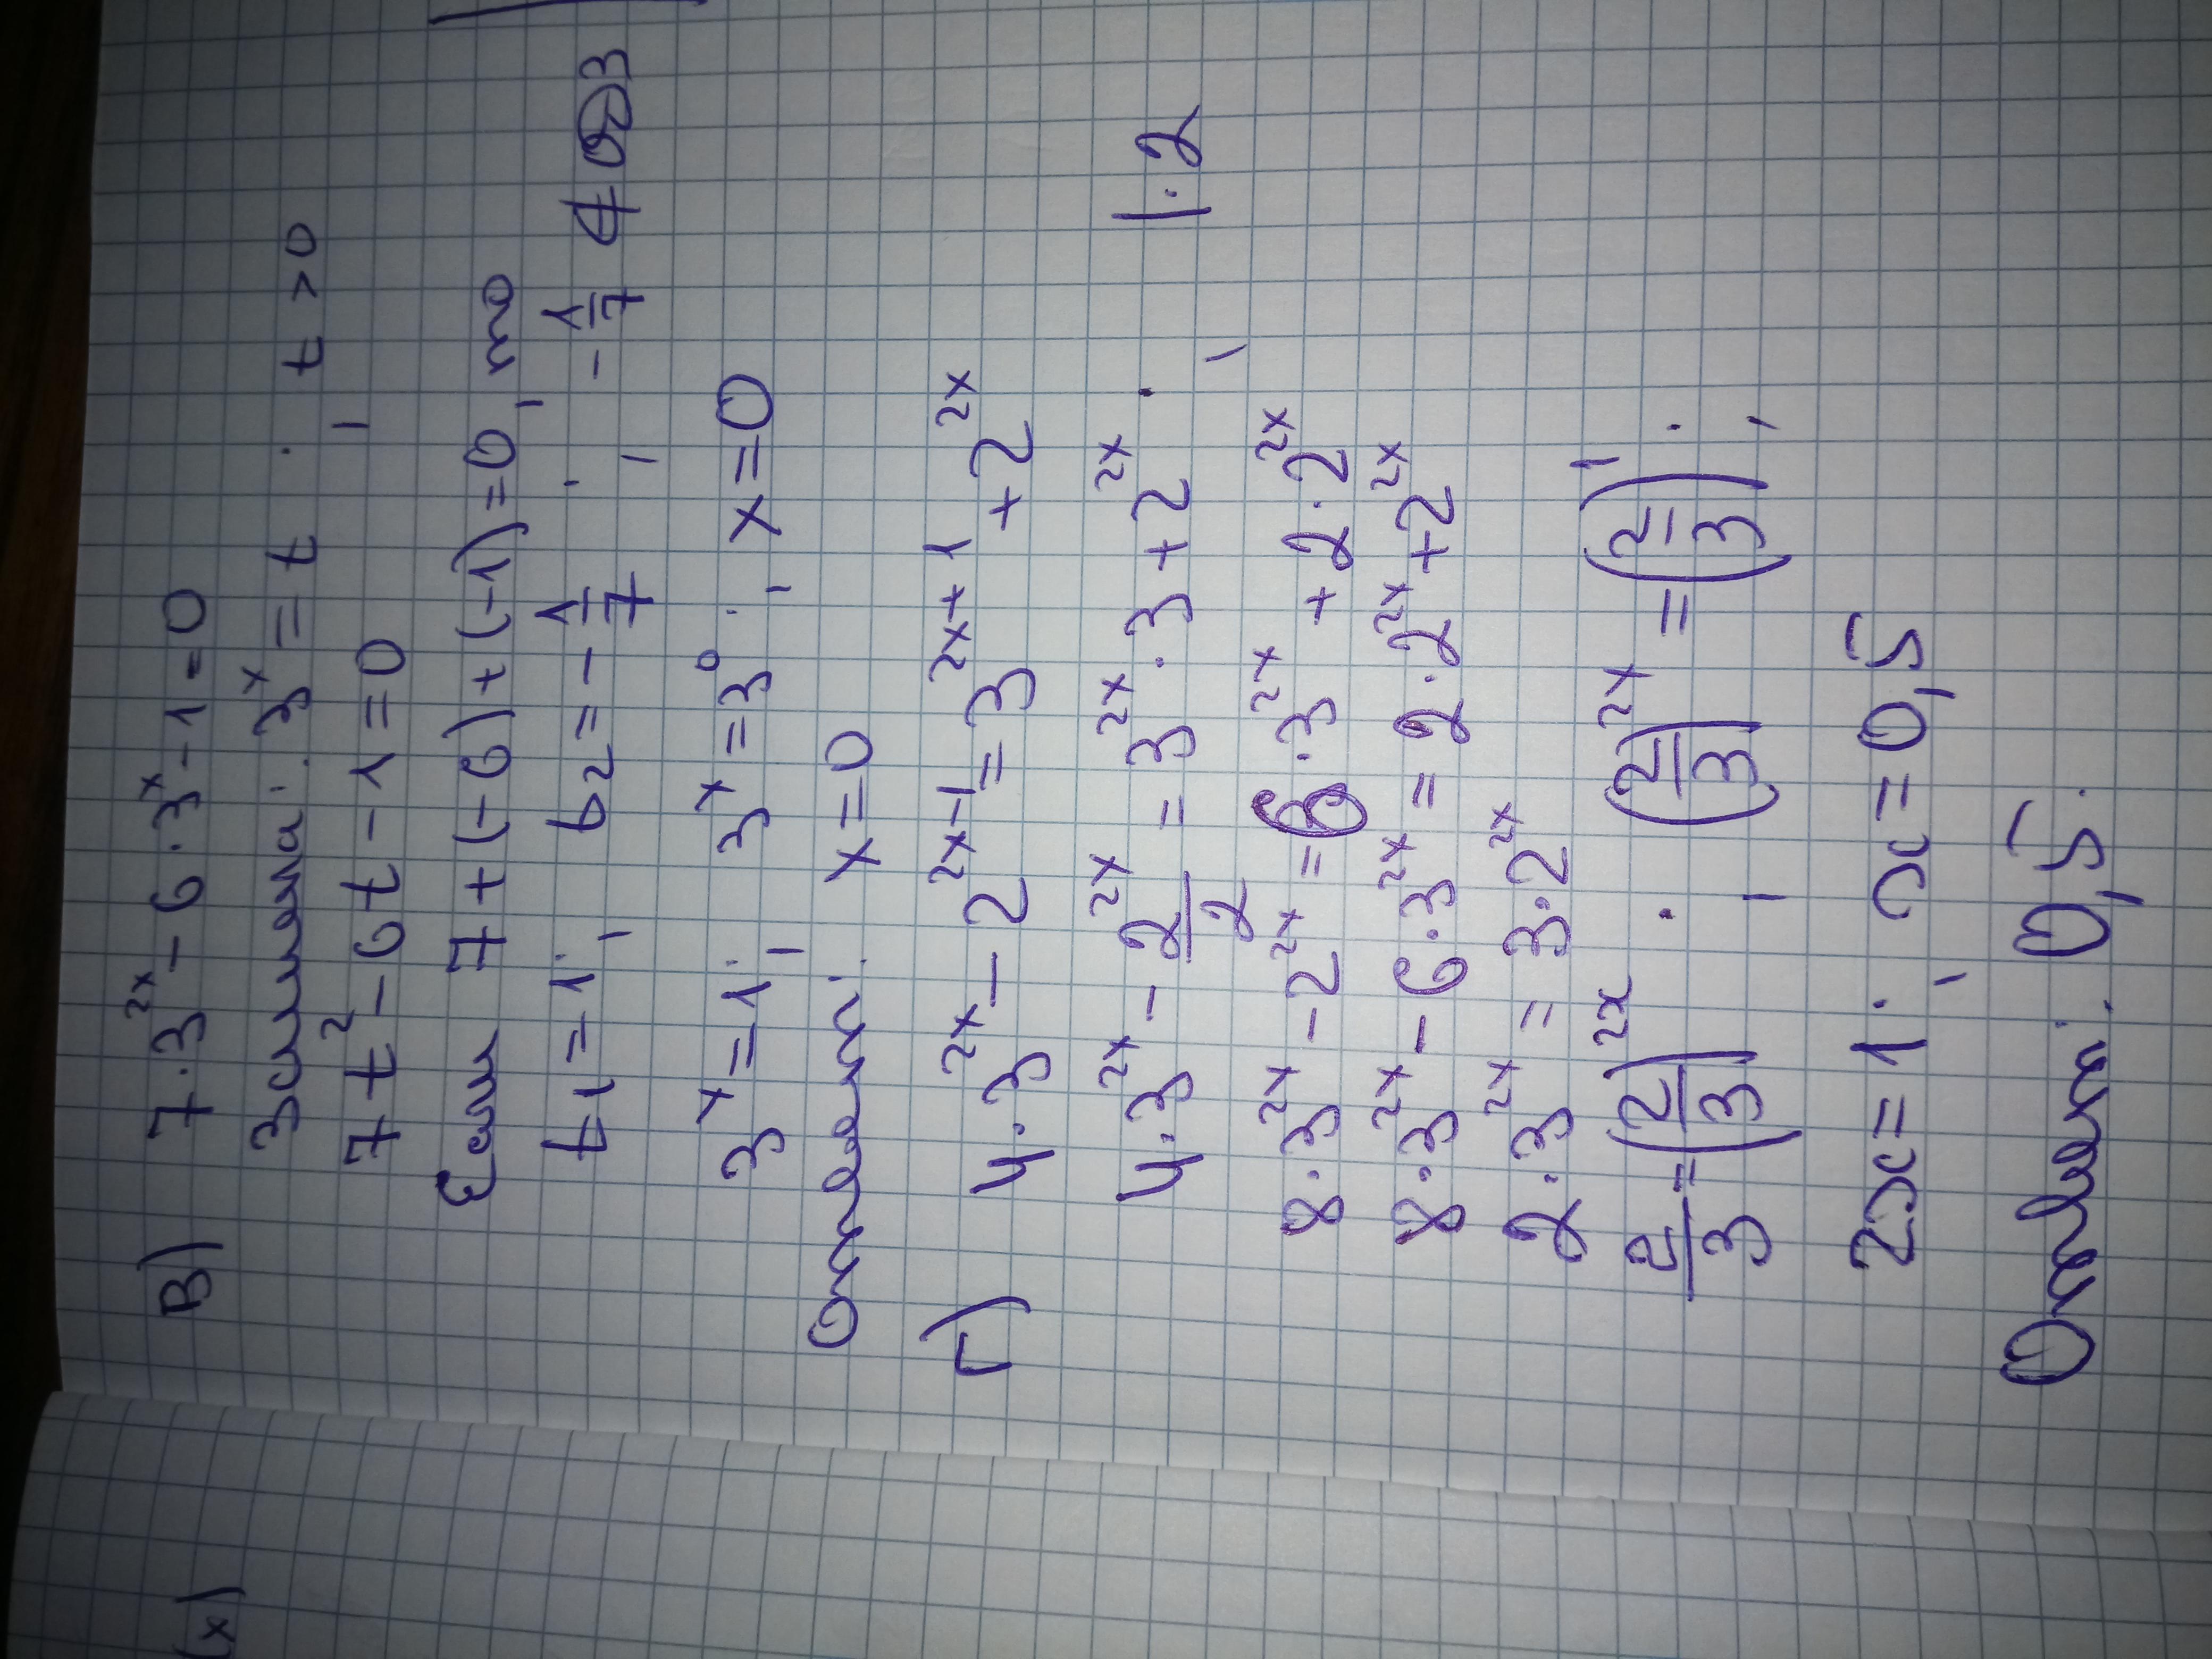 В) 7·3²ˣ - 6·3ˣ - 1 = 0
Замена: 3ˣ = t; t > 0
7t² - 6t - 1 = 0
Если 7 + (-6) + (-1) = 0, то
t₁ = 1; t₂ = -1/7; -1/7 ∉ ОДЗ
3ˣ = 1; 3ˣ = 3⁰; x = 0
Ответ: x = 0
Г) 4·3²ˣ - 2²ˣ⁻¹ = 3²ˣ⁺¹ + 2²ˣ
4·3²ˣ - 2²ˣ/2 = 3²ˣ·3 + 2²ˣ; |·2
8·3²ˣ - 2²ˣ = 6·3²ˣ + 2·2²ˣ
8·3²ˣ - 6·3²ˣ = 2·2²ˣ + 2²ˣ
2·3²ˣ = 3·2²ˣ
2/3 = (2/3)²ˣ; (2/3)²ˣ = (2/3)¹;
2x = 1; x = 0,5
Ответ: 0,5.
(x)